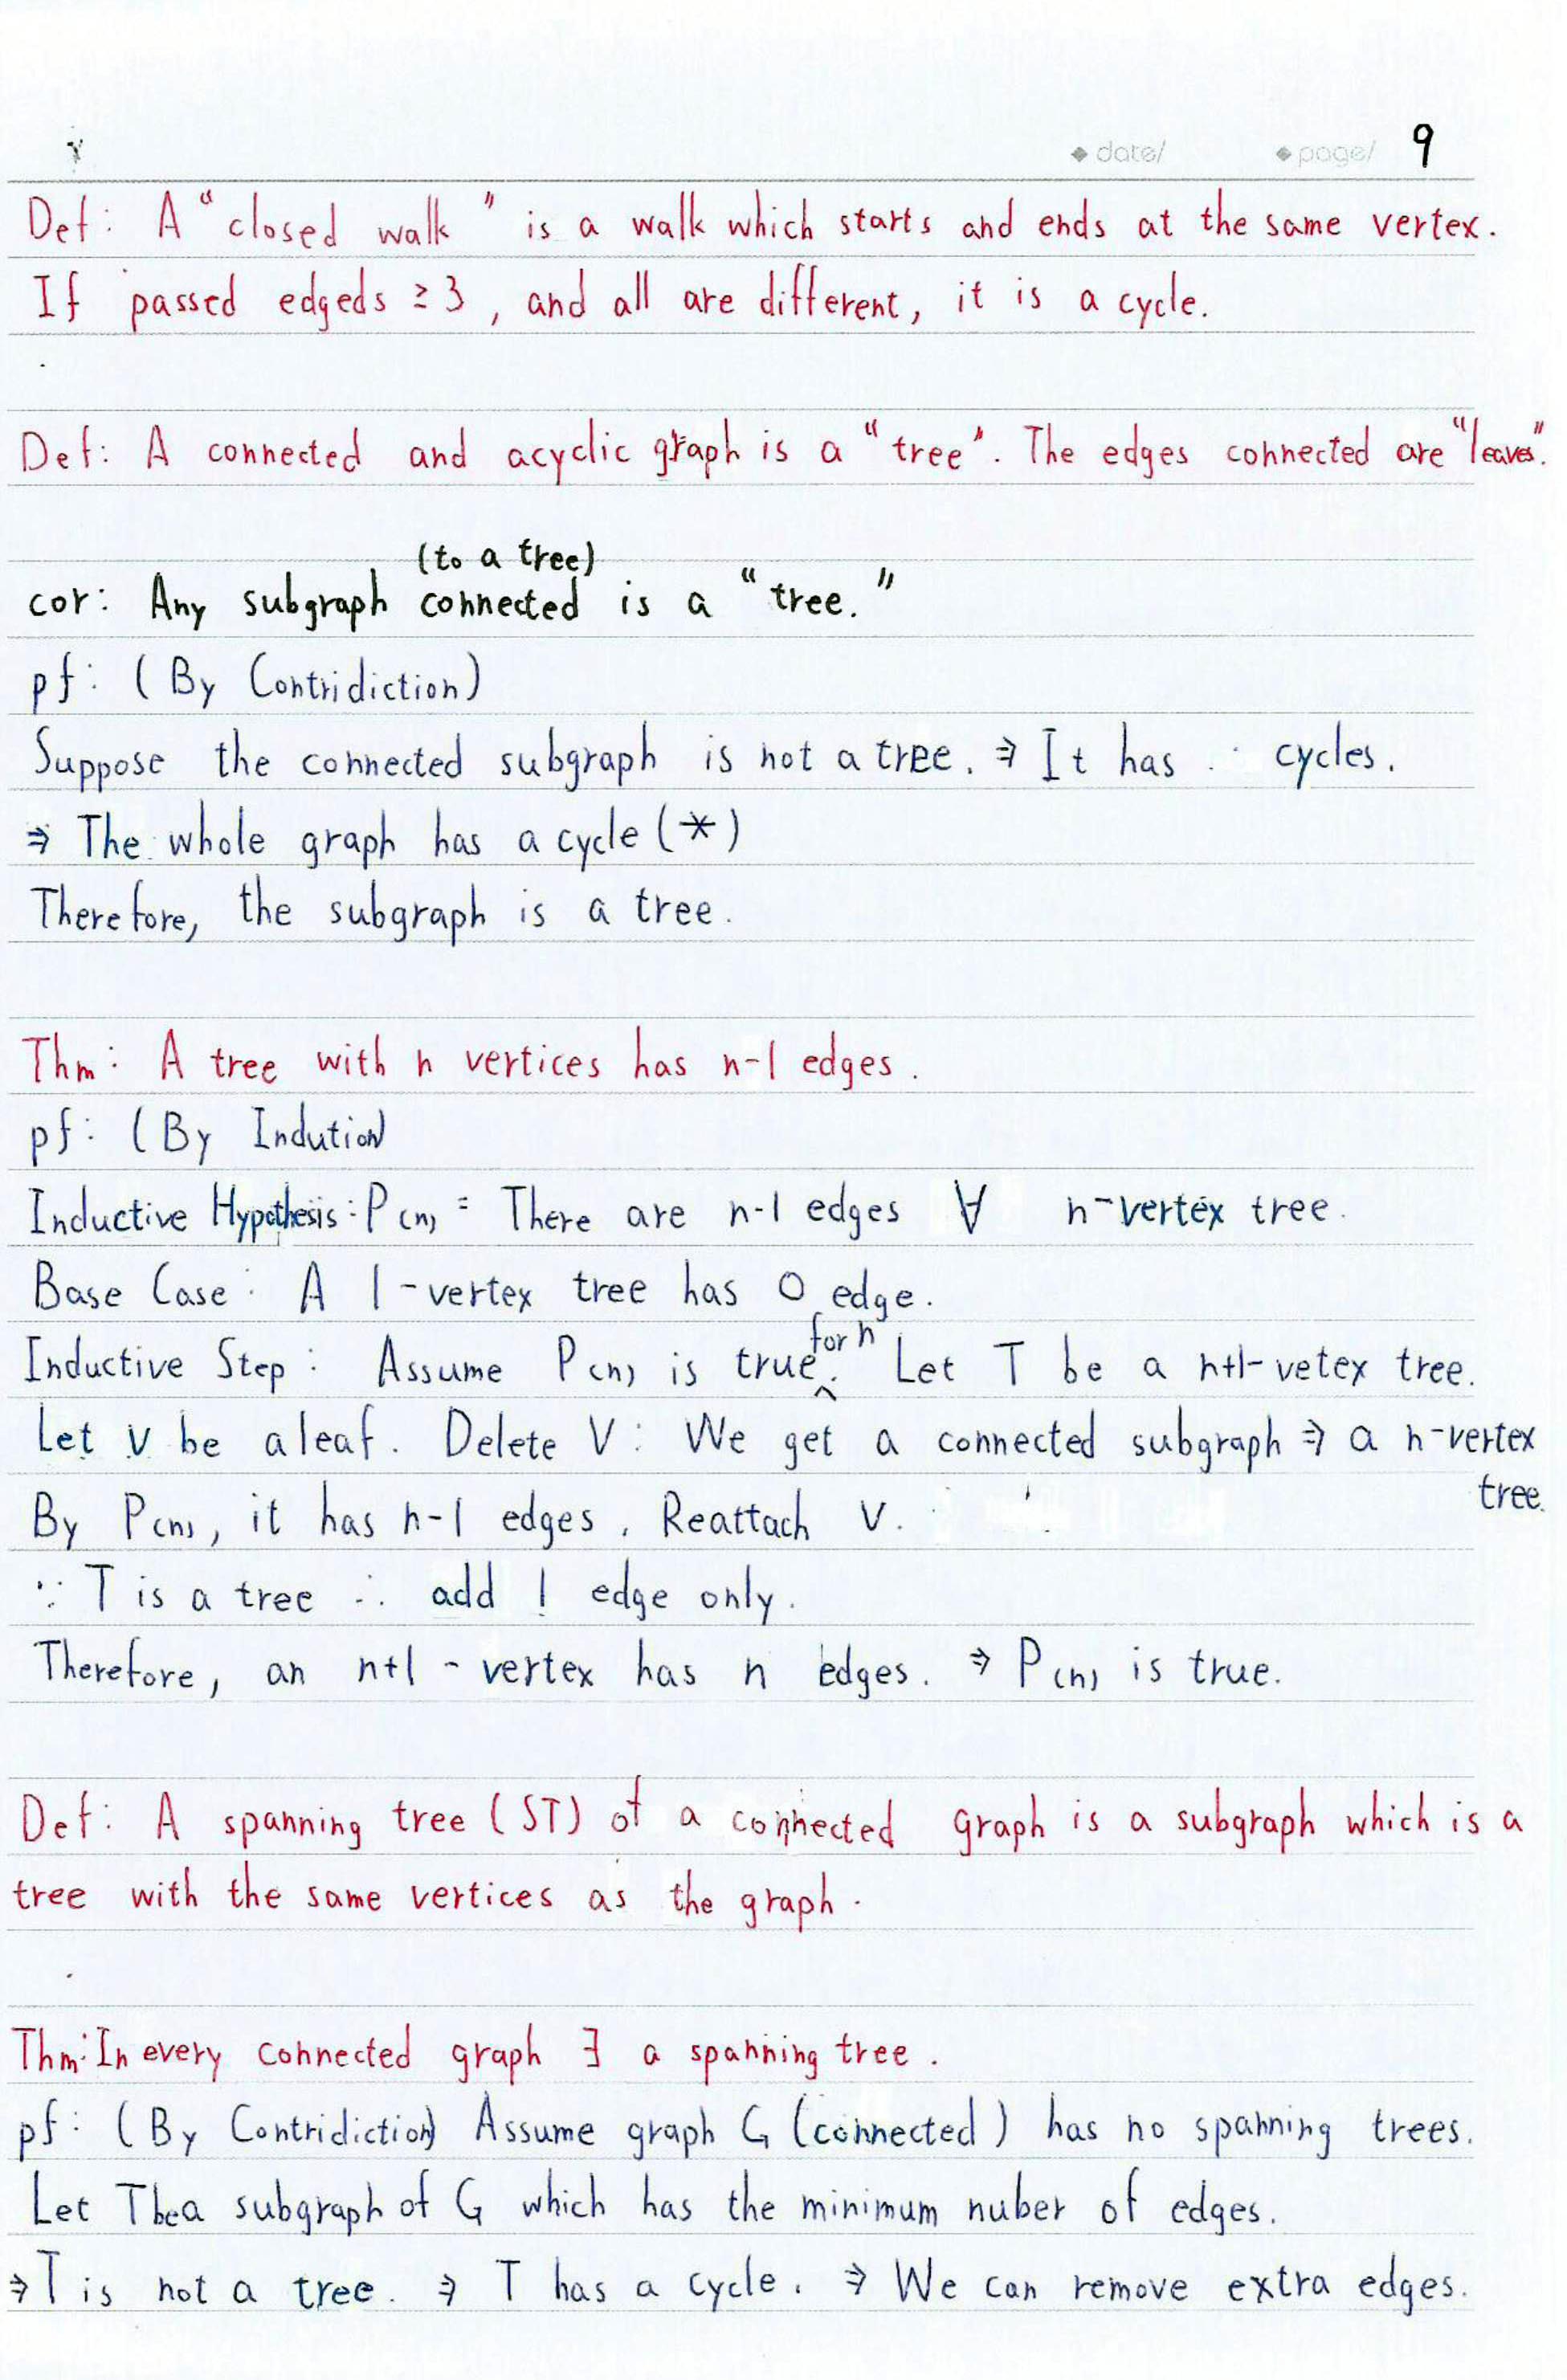 date/ page/ 9
Def: A "closed walk" is a walk which starts and ends at the same vertex.
If passed edgeds ≥ 3, and all are different, it is a cycle.
Def: A connected and acyclic graph is a "tree". The edges connected are "leaves".
(to a tree)
cor: Any subgraph connected is a "tree."
pf: (By Contridiction)
Suppose the connected subgraph is not a tree. ⇒ It has cycles.
⇒ The whole graph has a cycle (*)
Therefore, the subgraph is a tree.
Thm: A tree with n vertices has n-1 edges.
pf: (By Indution)
Inductive Hypothesis: P(n) = There are n-1 edges ∀ n-vertex tree.
Base Case: A 1-vertex tree has 0 edge.
for n
Inductive Step: Assume P(n) is true. Let T be a n+1-vetex tree.
Let v be a leaf. Delete V: We get a connected subgraph ⇒ a n-vertex
tree.
By P(n), it has n-1 edges. Reattach V.
∵ T is a tree ∴ add 1 edge only.
Therefore, an n+1-vertex has n edges. ⇒ P(n) is true.
Def: A spanning tree (ST) of a connected graph is a subgraph which is a
tree with the same vertices as the graph.
Thm: In every connected graph ∃ a spanning tree.
pf: (By Contridiction) Assume graph G (connected) has no spanning trees.
Let T be a subgraph of G which has the minimum nuber of edges.
⇒ T is not a tree. ⇒ T has a cycle. ⇒ We can remove extra edges.